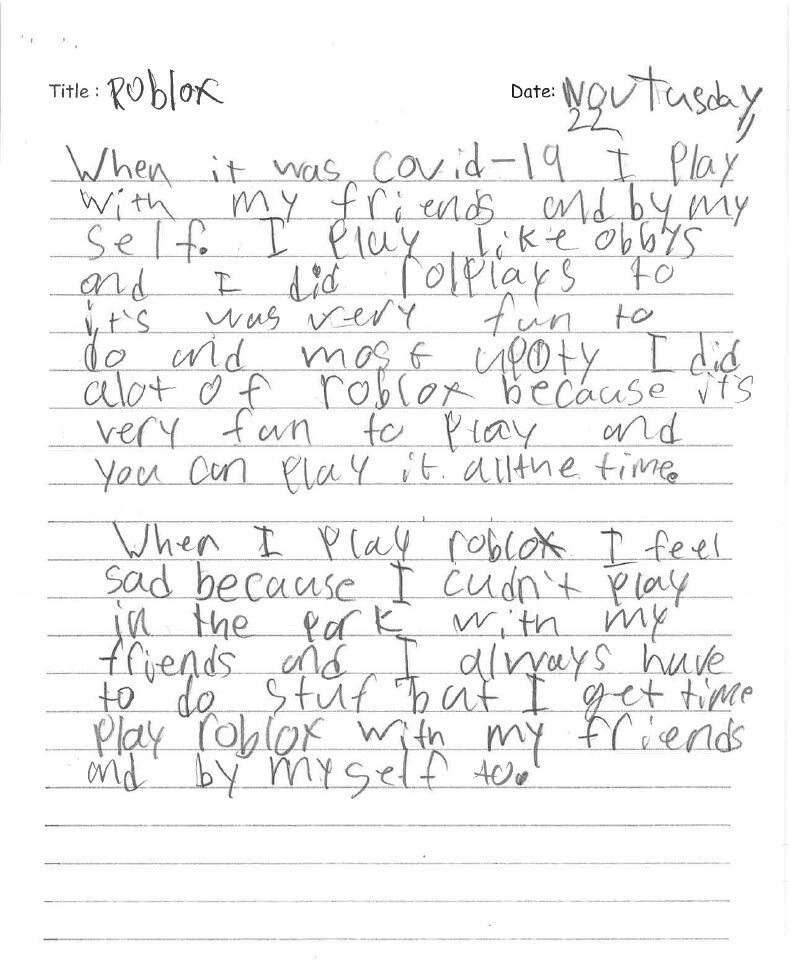 Title: Roblox
Date: Nov Tusday
22
When it was covid-19 I play
with my friends and by my
self. I play like obbys
and I did rolplays to
it's was very fun to
do and most I did
alot of roblox because it's
very fun to play and
you can play it all the time.
When I play roblox I feel
sad because I cudn't play
in the park with my
friends and I always have
to do stuf but I get time
play roblox with my friends
and by my self to.